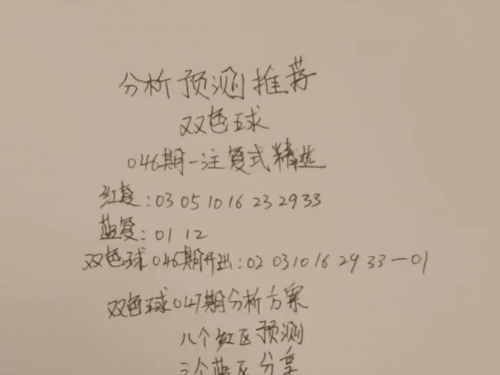 分析预测推荐
双色球
046期一注复式精选
红复:03 05 10 16 23 29 33
蓝复:01 12
双色球046期开出:02 03 10 16 29 33—01
双色球047期分析方案
八个红区预测
三个蓝区分享